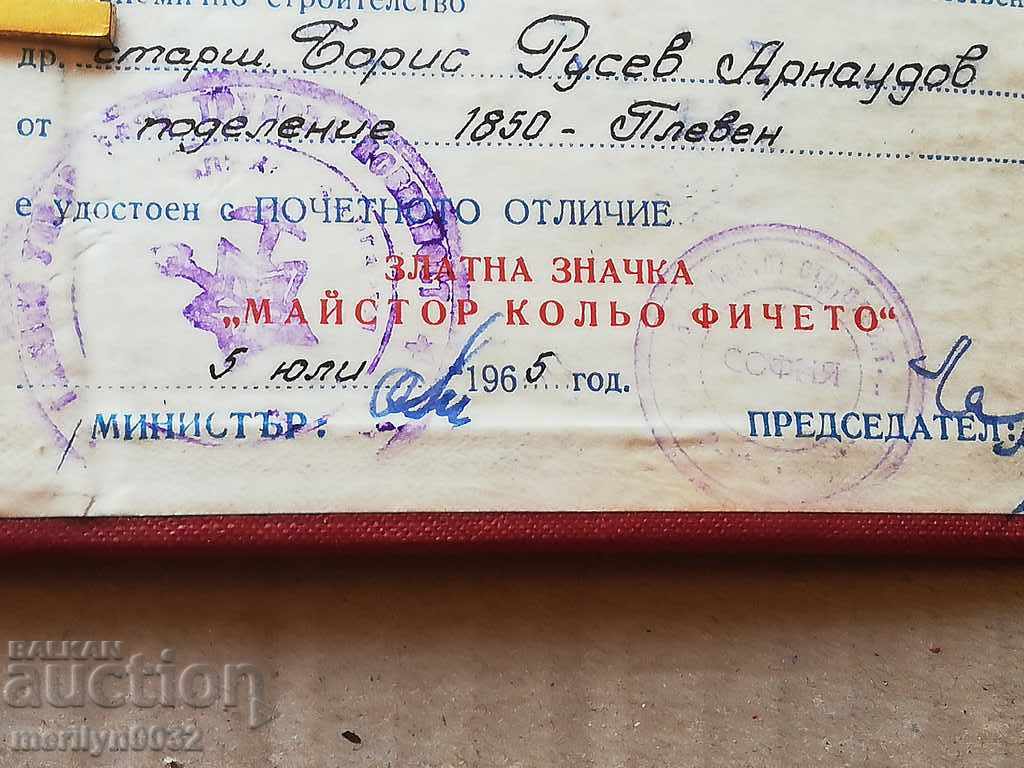 строителство
др. старш. Борис Русев Арнаудов
от поделение 1850 - Плевен
е удостоен с ПОЧЕТНОТО ОТЛИЧИЕ
ЗЛАТНА ЗНАЧКА
„МАЙСТОР КОЛЬО ФИЧЕТО“
5 юли 1965 год.
МИНИСТЪР: ПРЕДСЕДАТЕЛ:
СОФИЯ
BALKAN
auction
merilyn0032